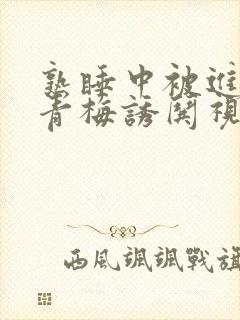 熟睡中被進
青梅誘関視
西風颯颯戰旗